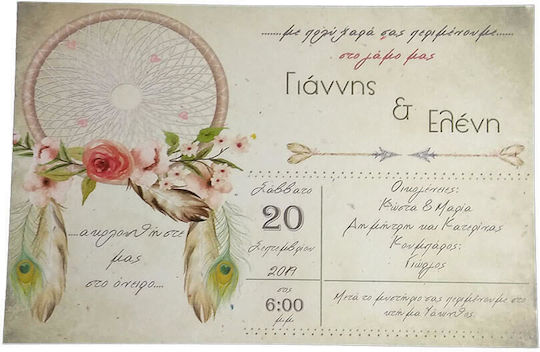 ........με πολύ χαρά σας περιμένουμε......
στο γάμο μας
Γιάννης
&
Ελένη
....ακολουθήστε
μας
στο όνειρο....
Σάββατο
20
Σεπτεμβρίου
2019
στις
6:00
μμ
Οικογένειες:
Κώστα & Μαρία
Δημήτρη και Κατερίνας
Κουμπάρος:
Γιώργος
Μετά το μυστήριο σας περιμένουμε στο
κτήμα Υάκινθος.